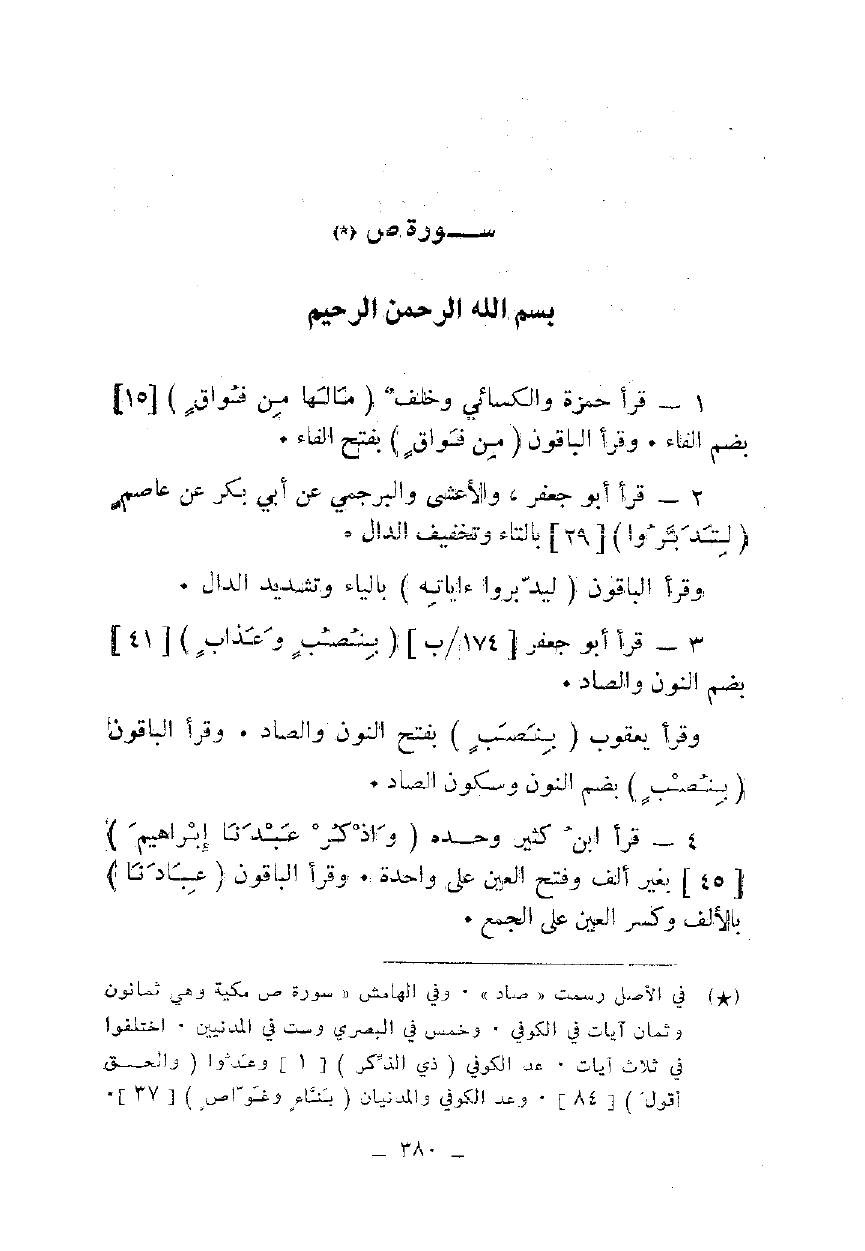 ســـورة ص (*)
بسم الله الرحمن الرحيم
١ ــ قرأ حمزة والكسائي وخلفٌ ( مَالَهَا مِن فُوَاقٍ ) [١٥]
بضم الفاء ٠ وقرأ الباقون ( مِن فَوَاقٍ ) بفتح الفاء ٠
٢ ــ قرأ أبو جعفر ، والأعشى والبرجمي عن أبي بكر عن عاصمٍ
( لِتَدَبَّرُوا ) [ ٢٩ ] بالتاء وتخفيف الدال ٠
وقرأ الباقون ( ليدّبروا ءاياتِه ) بالياء وتشديد الدال ٠
٣ ــ قرأ أبو جعفر [ ١٧٤/ب ] ( بِنُصُبٍ وَعَذَابٍ ) [ ٤١ ]
بضم النون والصاد ٠
وقرأ يعقوب ( بِنَصَبٍ ) بفتح النون والصاد ٠ وقرأ الباقون
( بِنُصْبٍ ) بضم النون وسكون الصاد ٠
٤ ــ قرأ ابنُ كثير وحــده ( وَاذْكُرْ عَبْدَنَا إِبْرَاهيمَ )
[ ٤٥ ] بغير ألف وفتح العين على واحدة ٠ وقرأ الباقون ( عِبَادَنَا )
بالألف وكسر العين على الجمع ٠
(★) في الأصل رسمت « صاد » ٠ وفي الهامش « سورة ص مكية وهي ثمانون
وثمان آيات في الكوفي ٠ وخمس في البصري وست في المدنيين ٠ اختلفوا
في ثلاث آيات ٠ عد الكوفي ( ذي الذّكر ) [ ١ ] وعَدّوا ( والحــق
أقولُ ) [ ٨٤ ] ٠ وعد الكوفي والمدنيان ( بَنَّاءٍ وغَوّاصٍ ) [ ٣٧ ] ٠
ــ ٣٨٠ ــ